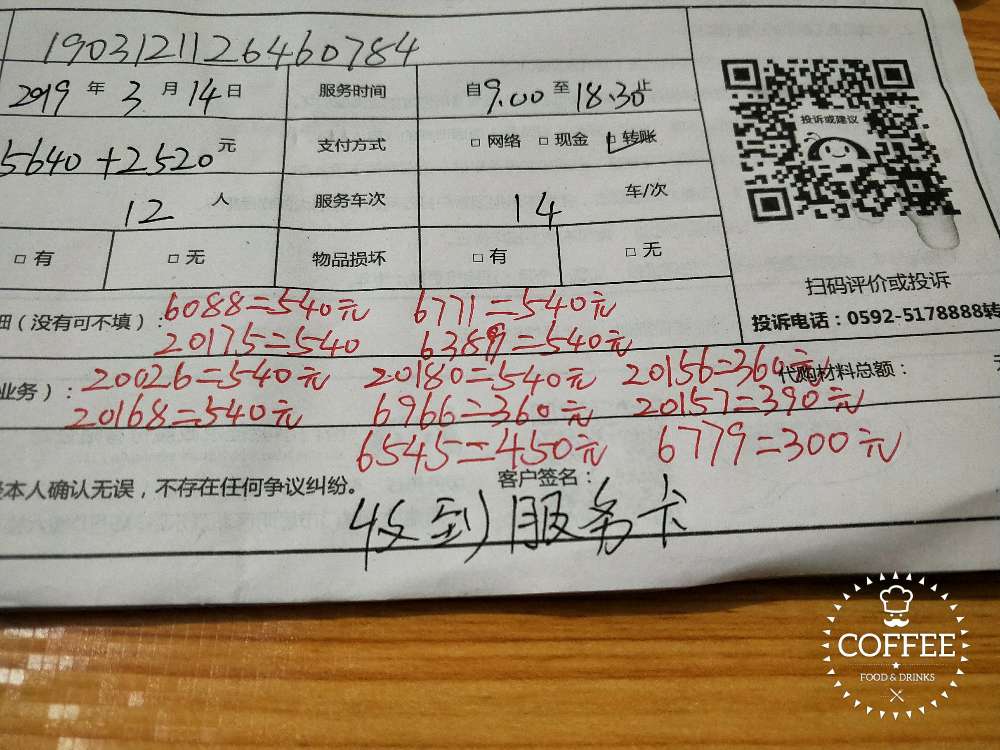 1903121126460784
2019 年 3 月 14 日 服务时间 自 9.00 至 18.30 止
5640+2520 元 支付方式 □ 网络 □ 现金 □ 转账
12 人 服务车次 14 车/次
□ 有 □ 无 物品损坏 □ 有 □ 无
投诉或建议
扫码评价或投诉
投诉电话：0592-5178888转
细（没有可不填）: 6088=540元 6771=540元
20175=540 6389=540元
业务）: 20026=540元 20180=540元 20156=360元 代购材料总额：
20168=540元 6966=360元 20157=390元
6545=450元 6779=300元
本人确认无误，不存在任何争议纠纷。 客户签名：
收到服务卡
COFFEE
FOOD & DRINKS